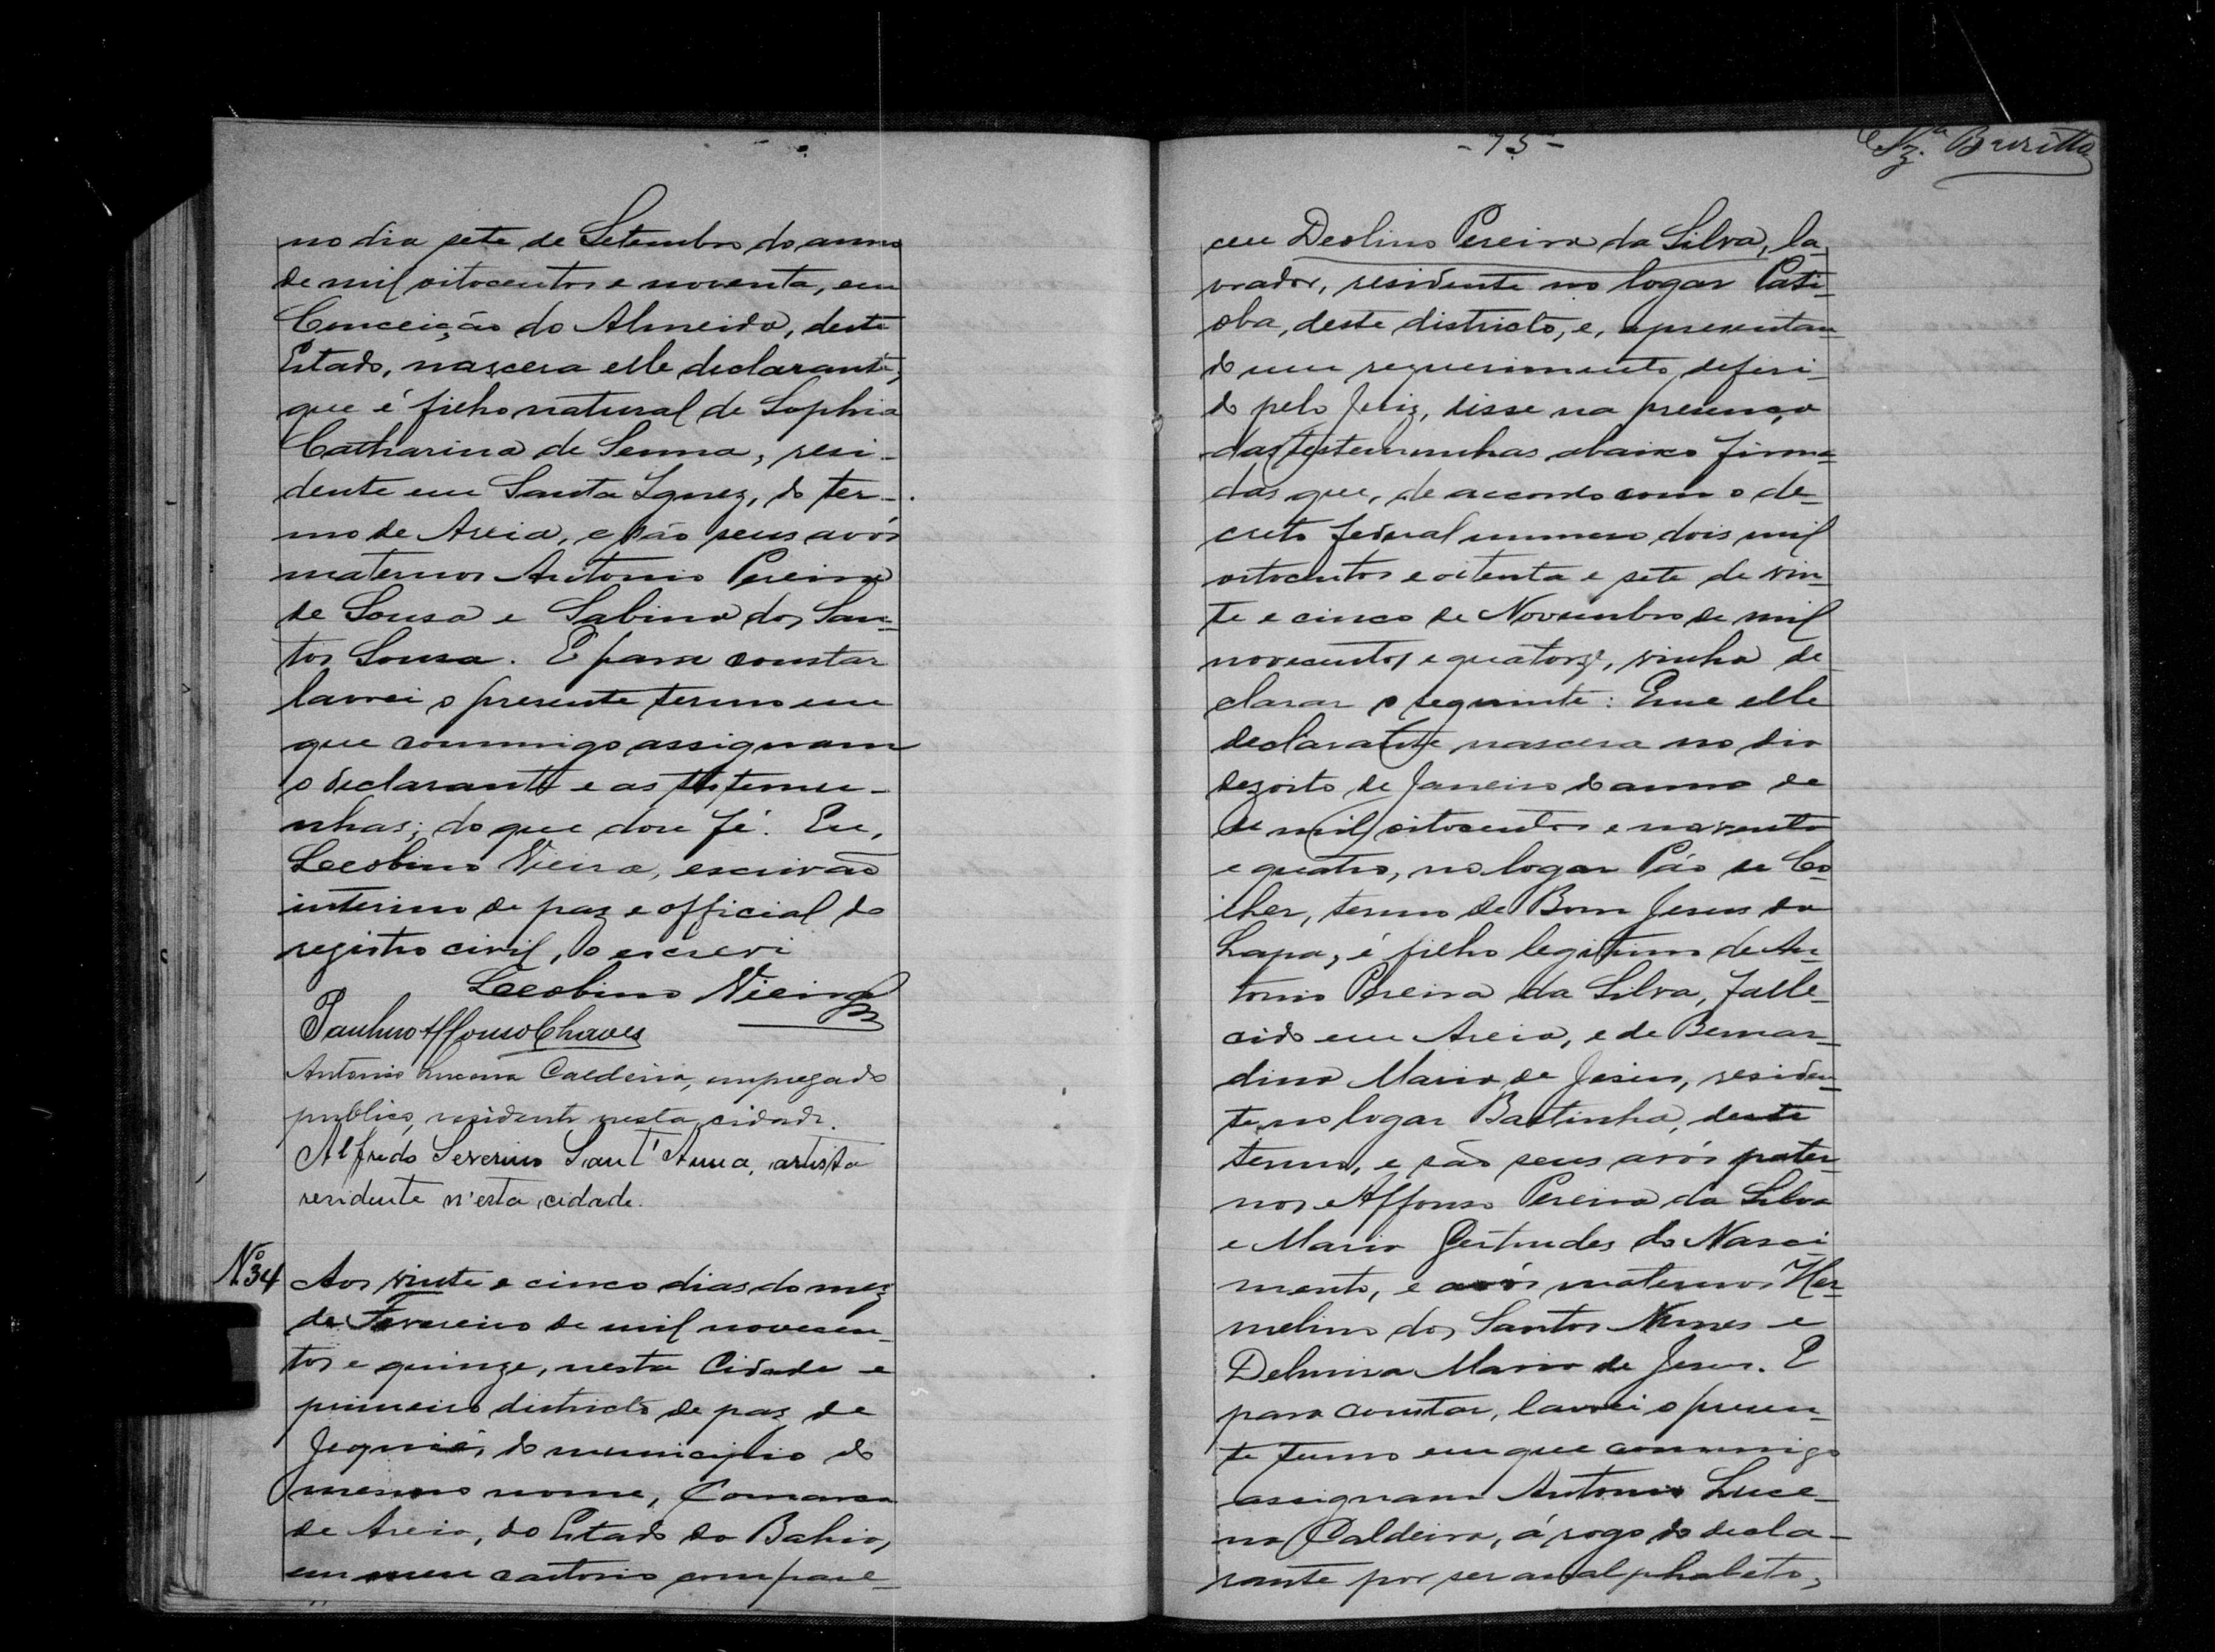 no dia sete de Setembro do anno
de mil oitocentos e noventa, em
Conceição do Almeida, deste
Estado, nascera elle declarante,
que é filho natural de Sophia
Catharina de Senna, resi-
dente em Santa Ignez, do ter-
mo de Areia, e são seus avós
maternos Antonio Pereira
de Sousa e Sabina dos San-
tos Sousa. E para constar
lavrei o presente termo em
que commigo assignam
o declarante e as testemu-
nhas; do que dou fé. Eu,
Leobino Vieira, escrivão
interino de paz e official do
registro civil, o escrevi
Leobino Vieira
Paulino Affonso Chaves
Antonio Lucena Caldeira, empregado
publico, residente nesta cidade.
Alfredo Severino Sant'Anna, artista
residente n'esta cidade.
Nº 34 Aos vinte e cinco dias do mez
de Fevereiro de mil novecen-
tos e quinze, nesta Cidade e
primeiro districto de paz de
Jequié, do municipio do
mesmo nome, Comarca
de Areia, do Estado da Bahia,
em meu cartorio compare-
-75-
Barretto
ceu Deolino Pereira da Silva, la-
vrador, residente no logar Pati-
oba, deste districto, e, apresentan-
do um requerimento deferi-
do pelo Juiz, disse na presença
das testemunhas abaixo firma-
das que, de accordo com o de-
creto federal numero dois mil
oitocentos e oitenta e sete de vin-
te e cinco de Novembro de mil
novecentos e quatorze, vinha de-
clarar o seguinte: Que elle
declarante nascera no dia
dezoito de Janeiro do anno de
de mil oitocentos e noventa
e quatro, no logar Páo de Co-
lher, termo de Bom Jesus da
Lapa, é filho legitimo de An-
tonio Pereira da Silva, falle-
cido em Areia, e de Bernar-
dina Maria de Jesus, residen-
te no logar Bastinha, deste
termo, e são seus avós pater-
nos Affonso Pereira da Silva
e Maria Gertrudes do Nasci-
mento, e avós maternos Her-
melino dos Santos Nunes e
Delmira Maria de Jesus. E
para constar, lavrei o presen-
te termo em que commigo
assignam Antonio Luce-
na Caldeira, á rogo do decla-
rante por ser analphabeto,